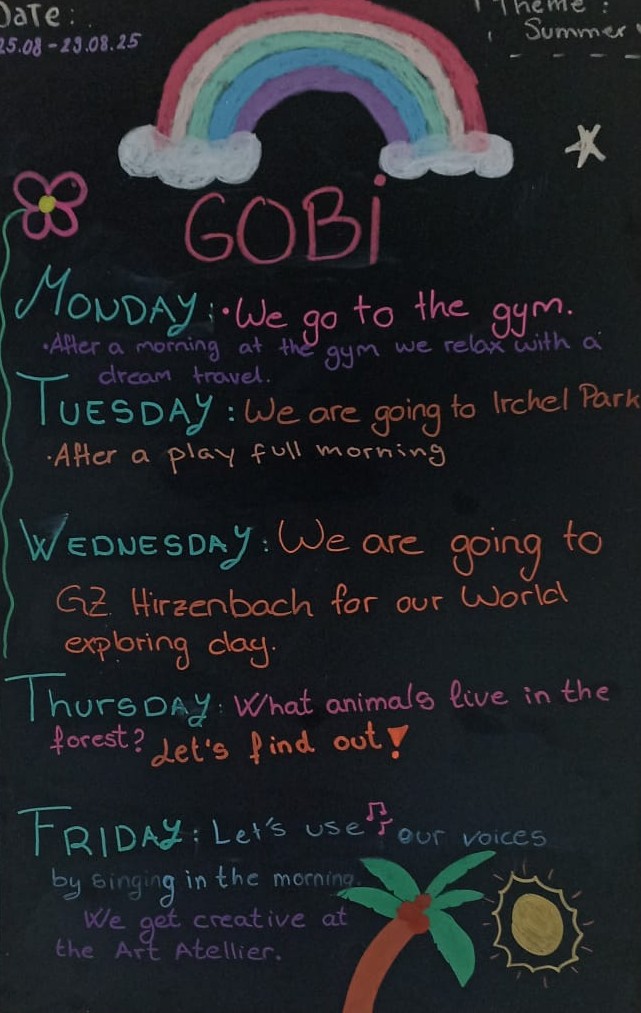 Date :
25.08 - 29.08.25
Theme :
Summer
GOBi
MONDAY: •We go to the gym.
•After a morning at the gym we relax with a
dream travel.
TUESDAY: We are going to Irchel Park
•After a play full morning
WEDNESDAY: We are going to
GZ Hirzenbach for our World
exploring day.
THURSDAY: What animals live in the
forest? Let's find out!
FRIDAY: Let's use our voices
by singing in the morning.
We get creative at
the Art Atellier.